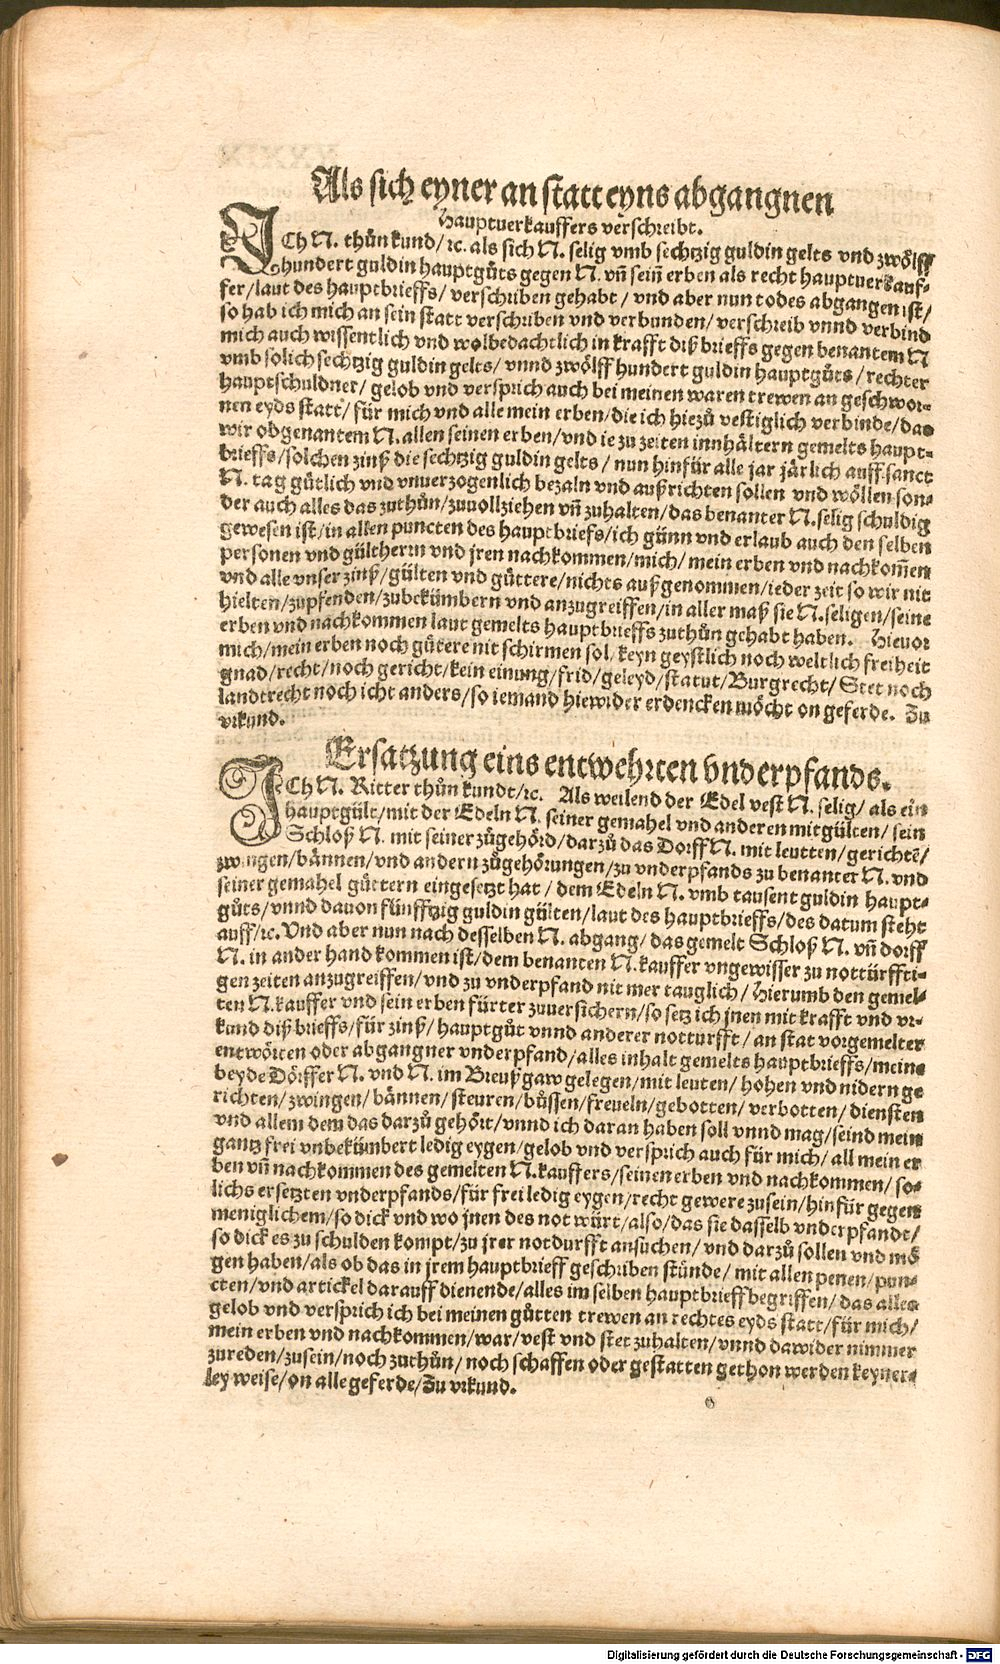 Als sich eyner an statt eyns abgangnen
Hauptverkauffers verschreibt.
ICh N. thůn kund/ ꝛc. als sich N. selig vmb sechtzig guldin gelts vnd zwölff
hundert guldin hauptgůts gegen N. vñ sein̄ erben als recht hauptverkauf-
fer/ laut des hauptbrieffs/ verschriben gehabt / vnd aber nun todes abgangen ist/
so hab ich mich an sein statt verschriben vnd verbunden/ verschreib vnnd verbind
mich auch wissentlich vnd wolbedachtlich in krafft diß brieffs gegen benantem N
vmb solich sechtzig guldin gelts/ vnnd zwölff hundert guldin hauptgůts / rechter
hauptschuldner/ gelob vnd versprich auch bei meinen waren trewen an geschwor-
nen eyds statt/ für mich vnd alle mein erben/ die ich hiezů vestiglich verbinde/ das
wir obgenantem N. allen seinen erben/ vnd ie zu zeiten innhältern gemelts haupt-
brieffs/ solchen zinß die sechtzig guldin gelts / nun hinfür alle jar järlich auff sanct
N. tag gůtlich vnd vnuerzogenlich bezaln vnd außrichten sollen vnd wöllen son-
der auch alles das zuthůn/ zuuollziehen vñ zuhalten/ das benanter N. selig schuldig
gewesen ist/ in allen puncten des hauptbriefs/ ich günn vnd erlaub auch den selben
personen vnd gültherrn vnd jren nachkommen/ mich/ mein erben vnd nachkom̄en
vnd alle vnser zinß/ gülten vnd güttere/ nichts außgenommen/ ieder zeit so wir nit
hielten/ zupfenden/ zubekümbern vnd anzugreiffen/ in aller maß sie N. seligen/ seine
erben vnd nachkommen laut gemelts hauptbrieffs zuthůn gehabt haben. Hieuor
mich/ mein erben noch gůtere nit schirmen sol/ keyn geystlich noch weltlich freiheit
gnad/ recht/ noch gericht/ kein einung/ frid/ geleyd/ statut/ Burgrecht/ Stet noch
landtrecht noch icht anders/ so iemand hiewider erdencken möcht on geferde. Zu
vrkund.
Ersatzung eins entwehrten vnderpfands.
ICh N. Ritter thůn kundt/ ꝛc. Als weilend der Edel vest N. selig/ als ein
hauptgült/ mit der Edeln N. seiner gemahel vnd anderen mitgülten/ sein
Schloß N. mit seiner zůgehörd/ darzů das Dorff N. mit leutten/ gerichtē/
zwingen/ bännen/ vnd andern zůgehörungen/ zu vnderpfands zu benanter N. vnd
seiner gemahel güttern eingesetzt hat / dem Edeln N. vmb tausent guldin haupt-
gůts/ vnnd dauon fünfftzig guldin gülten/ laut des hauptbrieffs/ des datum steht
auff/ ꝛc. Vnd aber nun nach desselben N. abgang/ das gemelt Schloß N. vñ dorff
N. in ander hand kommen ist/ dem benanten N. kauffer vngewisser zu nottürffti-
gen zeiten anzugreiffen/ vnd zu vnderpfand nit mer tauglich/ Hierumb den gemel-
ten N. kauffer vnd sein erben fürter zuuersichern/ so setz ich jnen mit krafft vnd vr-
kund diß brieffs/ für zinß/ hauptgůt vnnd anderer notturfft/ an stat vorgemelter
entwörten oder abgangner vnderpfand/ alles inhalt gemelts hauptbrieffs/ meine
beyde Dörffer N. vnd N. im Breußgaw gelegen/ mit leuten/ hohen vnd nidern ge
richten/ zwingen/ bännen/ steuren/ bůssen/ freueln/ gebotten/ verbotten/ diensten
vnd allem dem das darzů gehört/ vnnd ich daran haben soll vnnd mag/ seind mein
gantz frei vnbekümbert ledig eygen/ gelob vnd versprich auch für mich/ all mein er
ben vñ nachkommen des gemelten N. kauffers/ seinen erben vnd nachkommen/ so-
lichs ersetzten vnderpfands/ für frei ledig eygen/ recht gewere zusein/ hinfür gegen
meniglichem/ so dick vnd wo jnen des not würt/ also/ das sie dasselb vnderpfandt/
so dick es zu schulden kompt/ zu jrer notdurfft ansuchen/ vnd darzů sollen vnd mö
gen haben/ als ob das in jrem hauptbrieff geschriben stünde/ mit allen penen/ pun-
cten/ vnd artickel darauff dienende/ alles im selben hauptbrieff begriffen/ das alles
gelob vnd versprich ich bei meinen gůtten trewen an rechtes eyds statt/ für mich/
mein erben vnd nachkommen/ war/ vest vnd stet zuhalten/ vnnd dawider nimmer
zureden/ zusein/ noch zuthůn/ noch schaffen oder gestatten gethon werden keyner-
ley weise/ on alle geferde/ Zu vrkund.
Digitalisierung gefördert durch die Deutsche Forschungsgemeinschaft - DFG